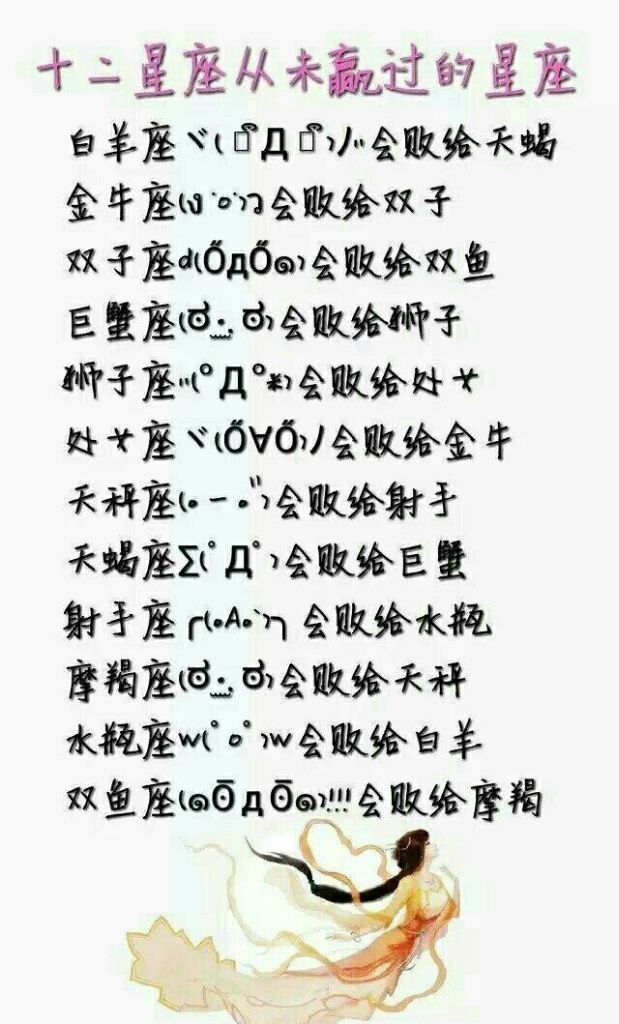 十二星座从未赢过的星座
白羊座ヾ( ﾟДﾟ)ﾉ〃会败给天蝎
金牛座(ง ˙o˙)ว会败给双子
双子座d(ŐдŐ๑)会败给双鱼
巨蟹座(ಠ .̫.̫ ಠ)会败给狮子
狮子座"(º Д º*)会败给处女
处女座ヾ(Ő∀Ő)ﾉ会败给金牛
天秤座(｡ー｡")会败给射手
天蝎座∑(ﾟДﾟ)会败给巨蟹
射手座╭(°A°`)╮会败给水瓶
摩羯座(ಠ .̫.̫ ಠ)会败给天秤
水瓶座w(ﾟoﾟ)w会败给白羊
双鱼座(๑Ō д Ō๑)!!!会败给摩羯